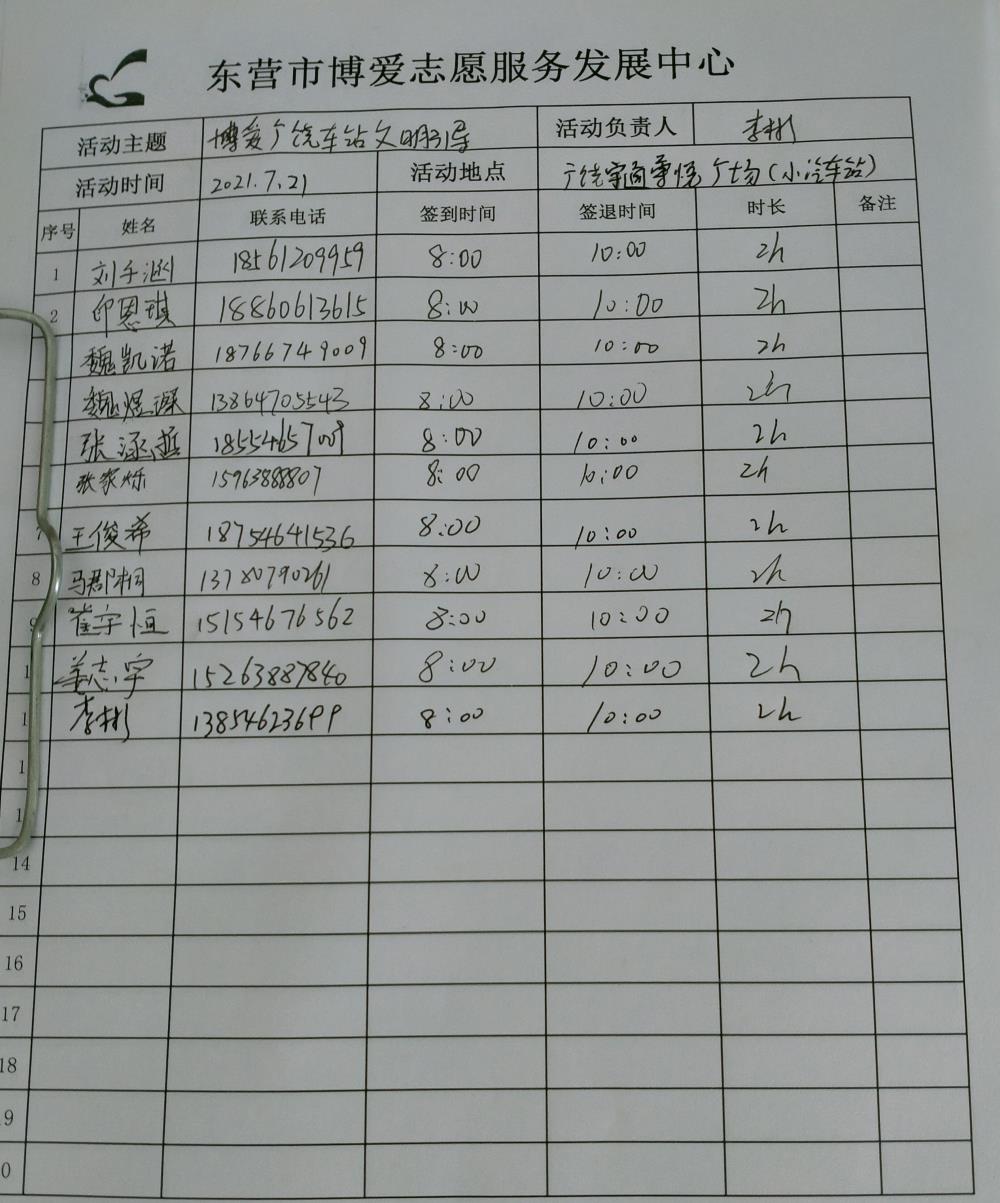 东营市博爱志愿服务发展中心
活动主题 博爱广饶车站文明引导 活动负责人 李彬
活动时间 2021.7.21 活动地点 广饶 广场(小汽车站)
序号 姓名 联系电话 签到时间 签退时间 时长 备注
1 刘子涵 18561209959 8:00 10:00 2h
2 印恩琪 18860613615 8:00 10:00 2h
魏凯诺 18766749009 8:00 10:00 2h
魏煜深 13864705543 8:00 10:00 2h
张涵哲 8:00 10:00 2h
张家烁 15963888807 8:00 10:00 2h
7 王俊希 18754641536 8:00 10:00 2h
8 马郡桐 13780790261 8:00 10:00 2h
9 崔宇恒 15154676562 8:00 10:00 2h
1 姜志宇 15263887840 8:00 10:00 2h
1 李彬 13854623699 8:00 10:00 2h
1
1
14
15
16
17
18
9
0